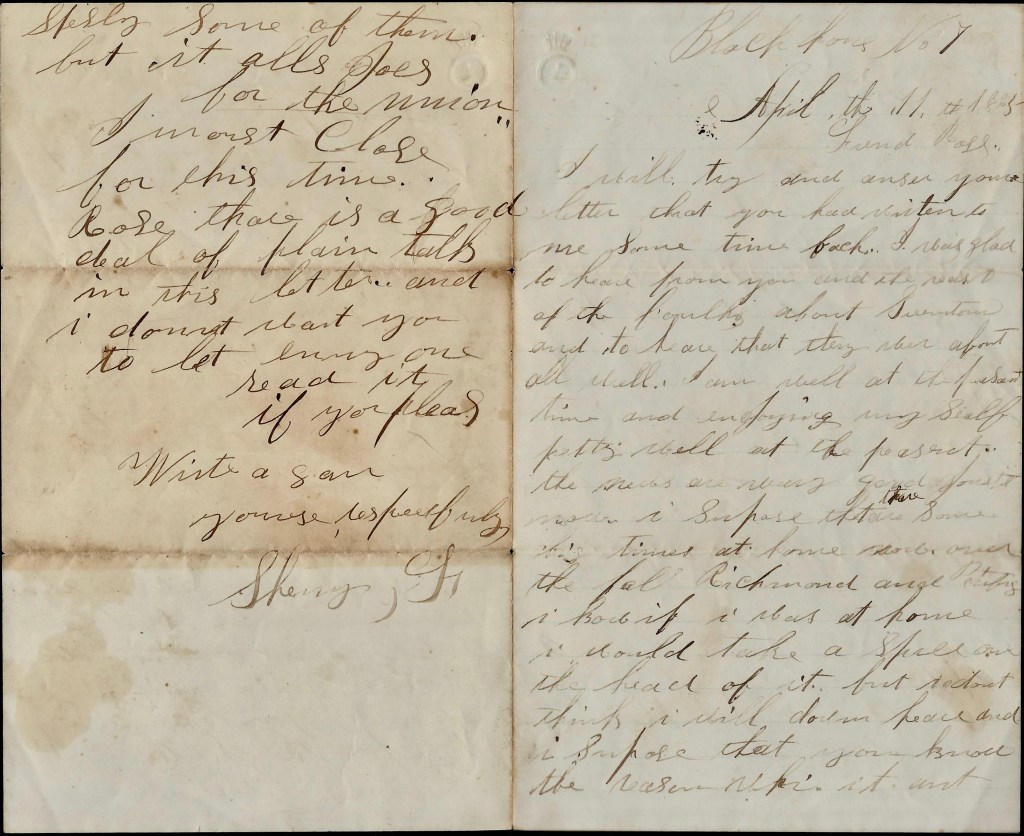 Block hous No 7
April the 11. th 1865
Frend Rose.
I will try and anser youre
letter that you had writen to
me some time back. I was glad
to heare from you and the rest
of the about
and to heare that they wer about
all well. I am well at the
time and enjoying my Self
petty well at the pasent..
the news are very good
now i Supose thare Some
big times at home now. over
the fall Richmond and
i know if i was at home
i would take a Spree on
the head of it. but i dont
think i will down heare and
i Supose that you know
the reason whi. it ant
some of them.
but it alls goes
for the union"
I morst Close
for this time.
Rose thare is a good
deal of plain talk
in this letter.. and
i donnt want you
to let enny one
read it
if you pleas
Write a gan
youres respecfuly
Sherry, F,